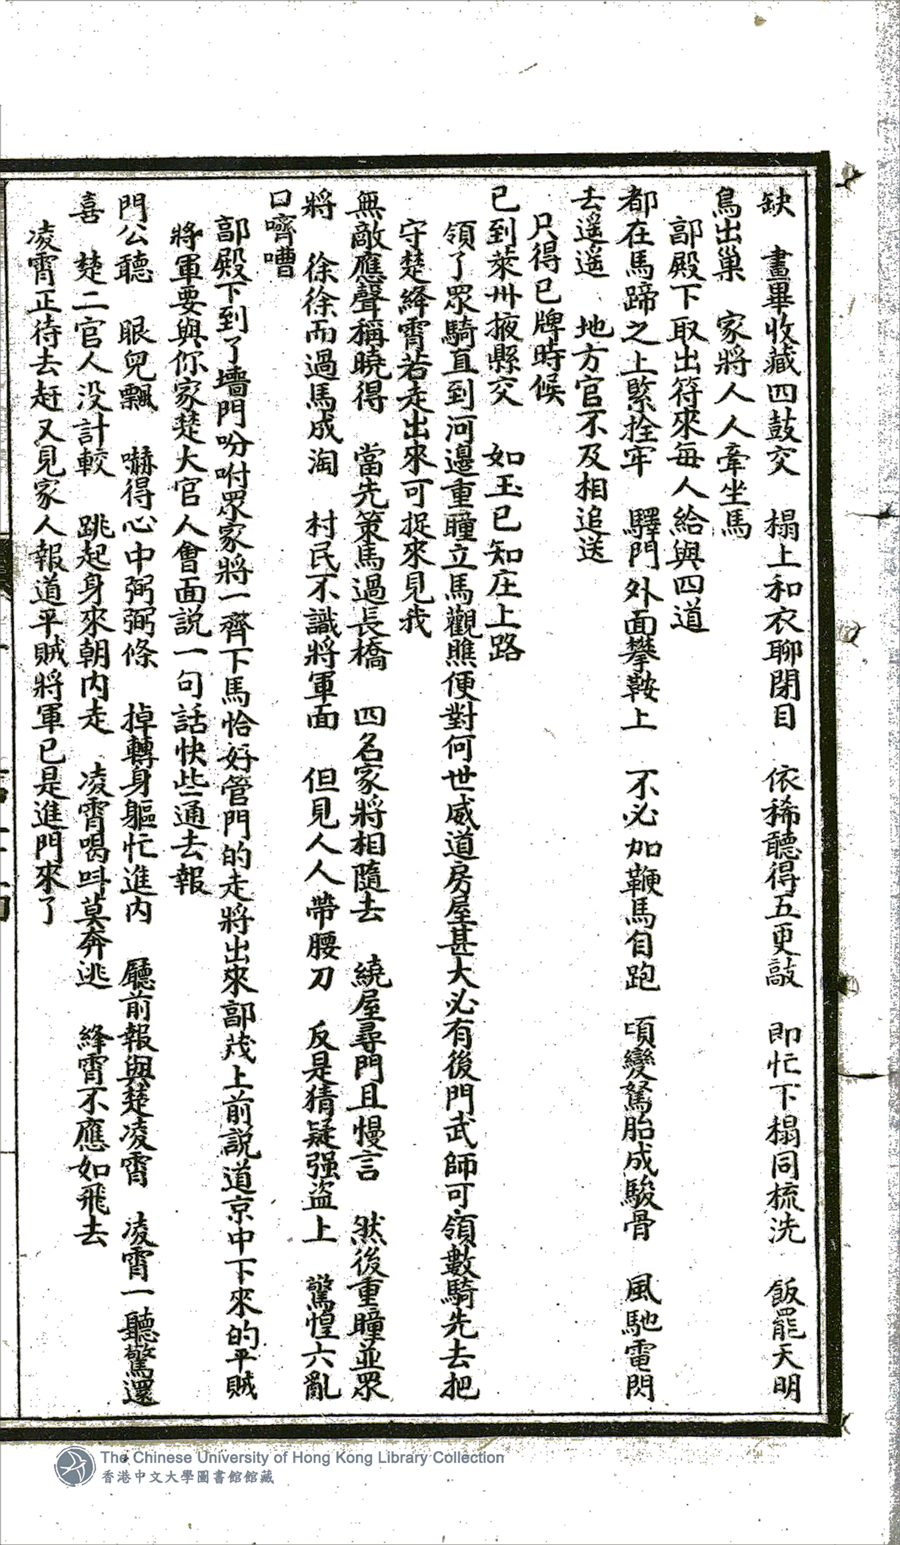 缺　畫畢收藏四鼓交　榻上和衣聊閉目　依稀聽得五更敲　即忙下榻同梳洗　飯罷天明
鳥出巢　家將人人牽坐馬
郭殿下取出符來每人給與四道
都在馬蹄之上緊拴牢　驛門外面攀鞍上　不必加鞭馬自跑　頃變駑胎成駿骨　風馳電閃
去遥遥　地方官不及相追送
只得已牌時候
已到萊州掖縣交　如玉已知庄上路
領了眾騎直到河邊重瞳立馬觀瞧便對何世威道房屋甚大必有後門武師可領數騎先去把
守楚絳霄若走出來可捉來見我
無敵應聲稱曉得　當先策馬過長橋　四名家將相隨去　繞屋尋門且慢言　然後重瞳並眾
將　徐徐而過馬成淘　村民不識將軍面　但見人人帶腰刀　反是猜疑强盗上　驚惶六亂
口嚌嘈
郭殿下到了墻門吩咐眾家將一齊下馬恰好管門的走將出來郭茂上前説道京中下來的平賊
將軍要與你家楚大官人會面説一句話快些通去報
門公聽　眼兒飄　嚇得心中弼弼條　掉轉身軀忙進内　廳前報與楚凌霄　凌霄一聽驚還
喜　楚二官人没計較　跳起身來朝内走　凌霄喝呌莫奔逃　絳霄不應如飛去
凌霄正待去赶又見家人報道平賊將軍已是進門來了
The Chinese University of Hong Kong Library Collection
香港中文大學圖書館館藏